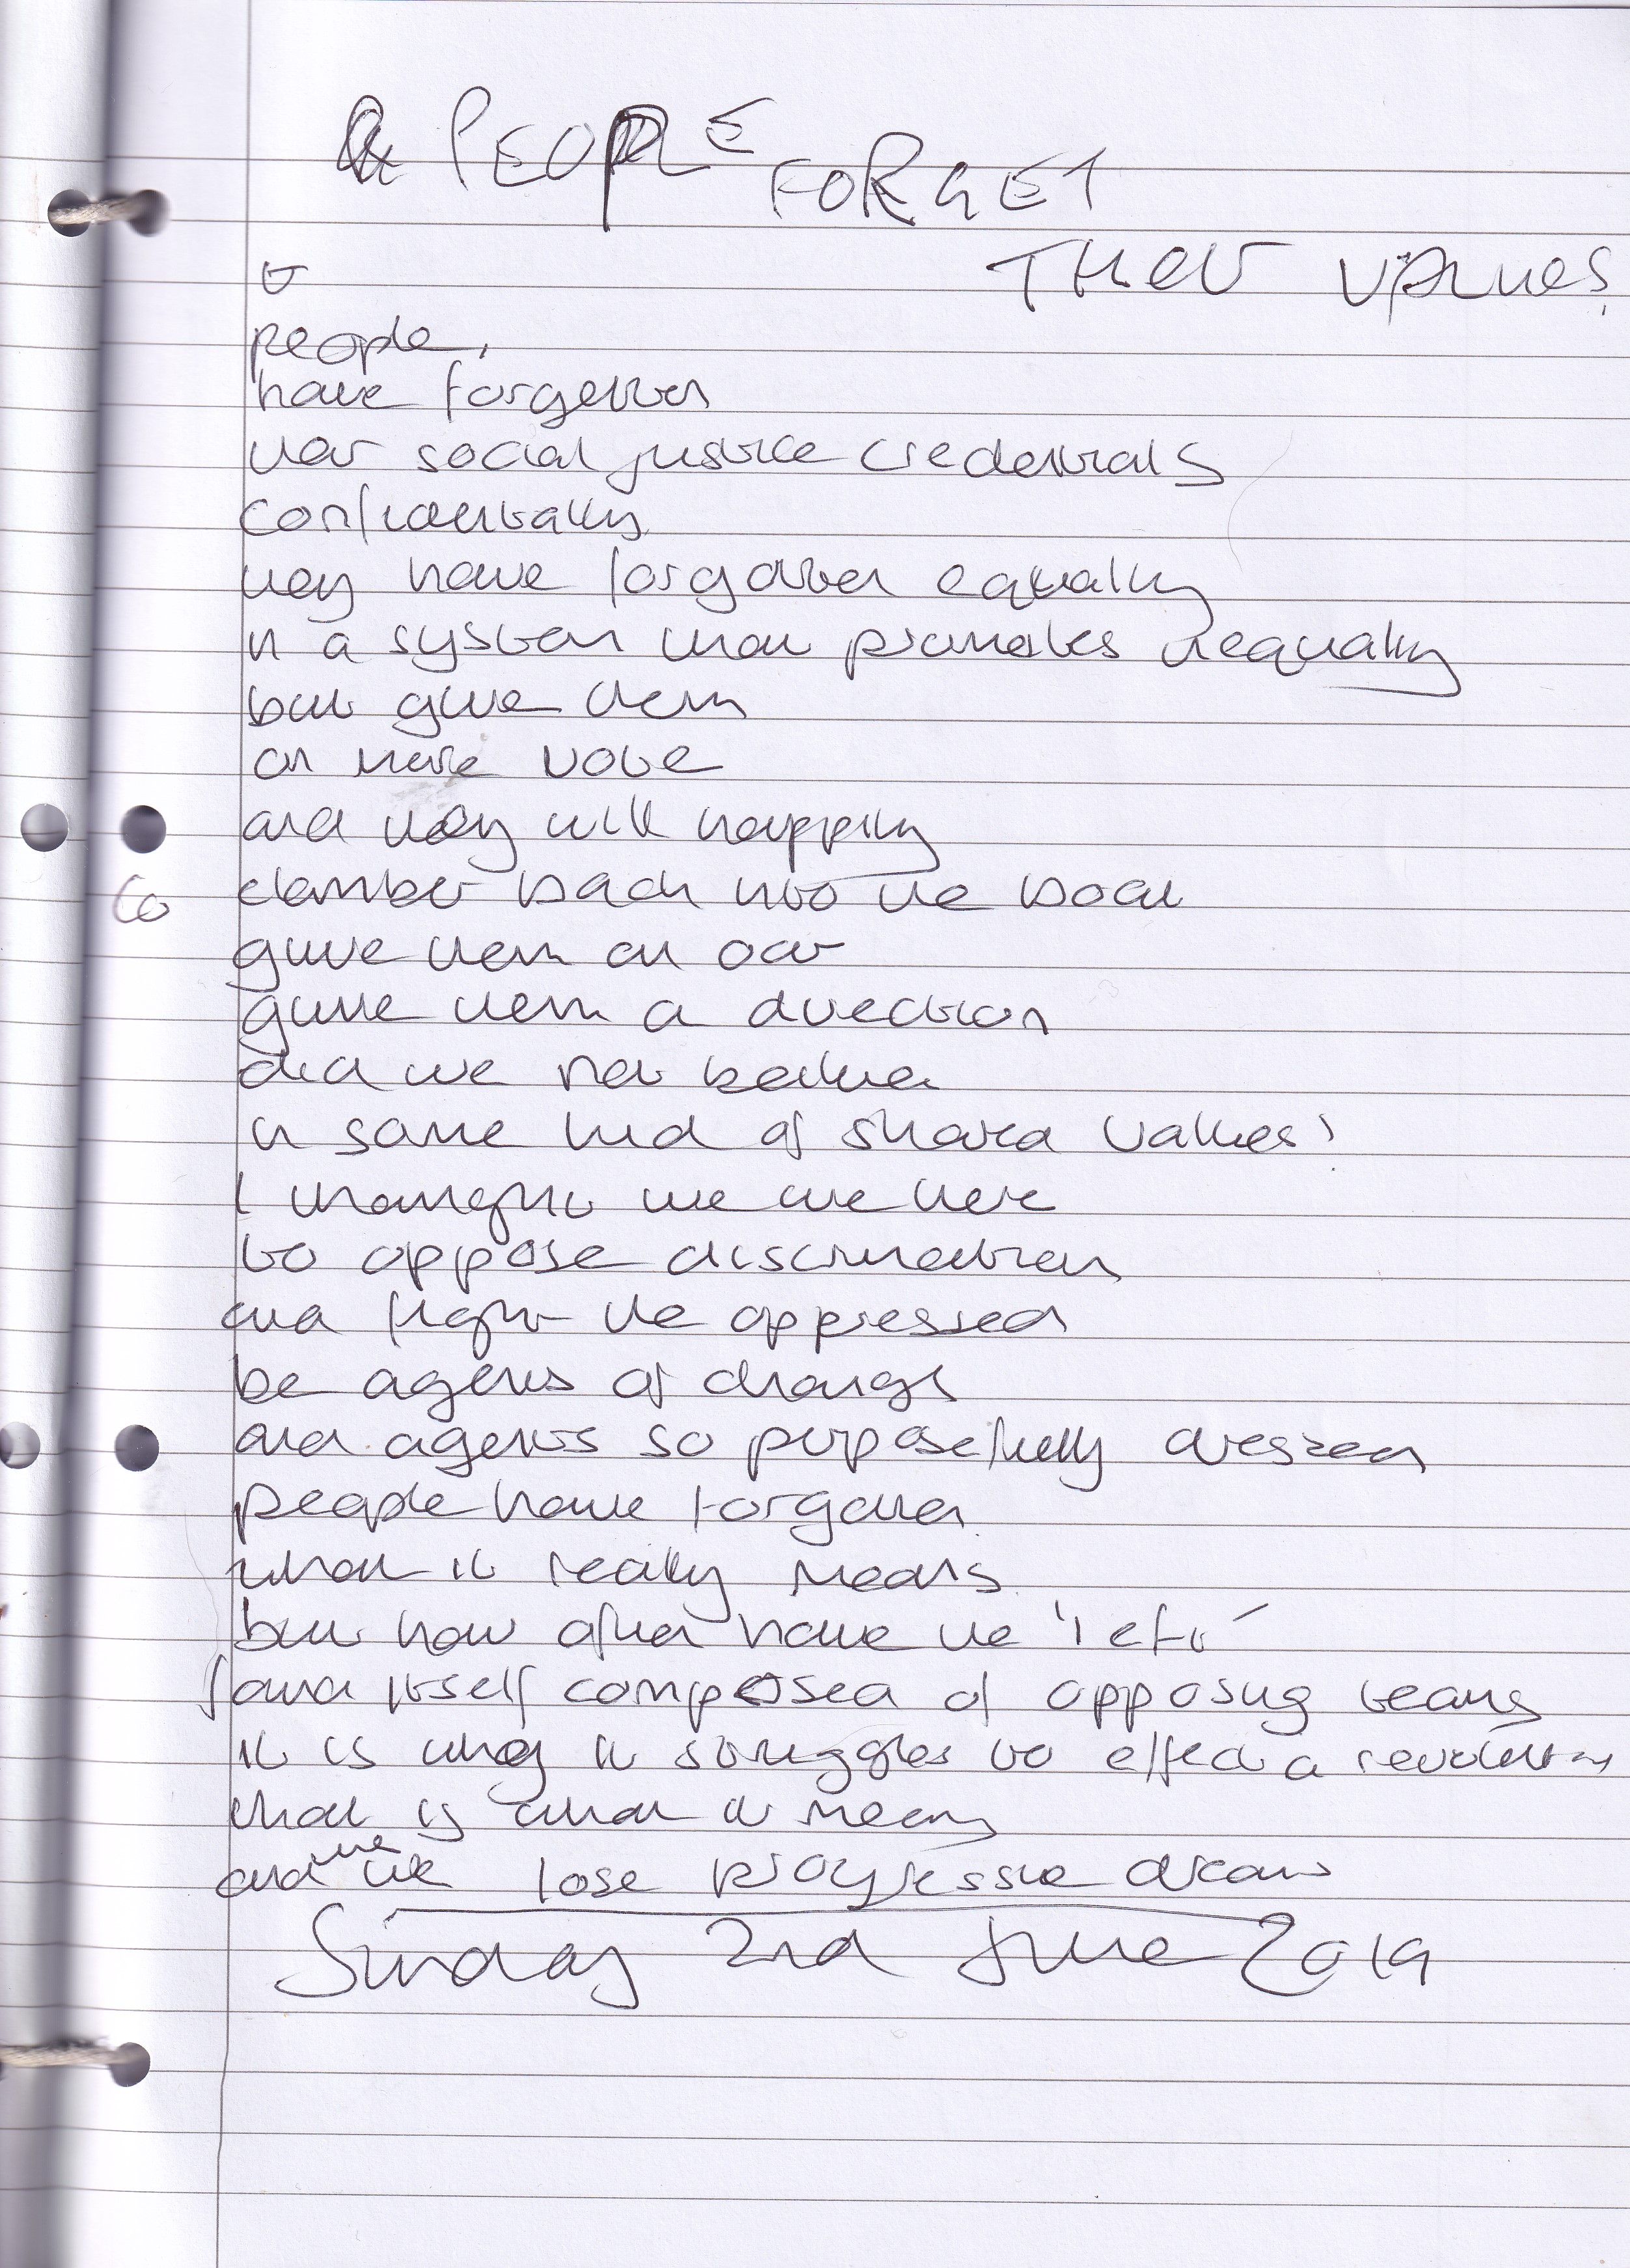 PEOPLE
FORGET
THEIR VALUES
people,
have forgotten
their social justice credentials
confidentially
they have forgotten equality
in a system that promotes inequality
but give them
an vote
and they will happily
clamber back into the boat
give them an oar
give them a direction
did we not believe
in some kind of shared values?
I thought we were here
to oppose discrimination
and fight the oppressed
be agents of change
and agents so purposefully dressed
people have forgotten
what it really means
but how often have the 'left'
found itself composed of opposing teams
it is why it struggles to effect a revolution
that is what it means
and we lose progressive dreams
Sunday 2nd June 2019